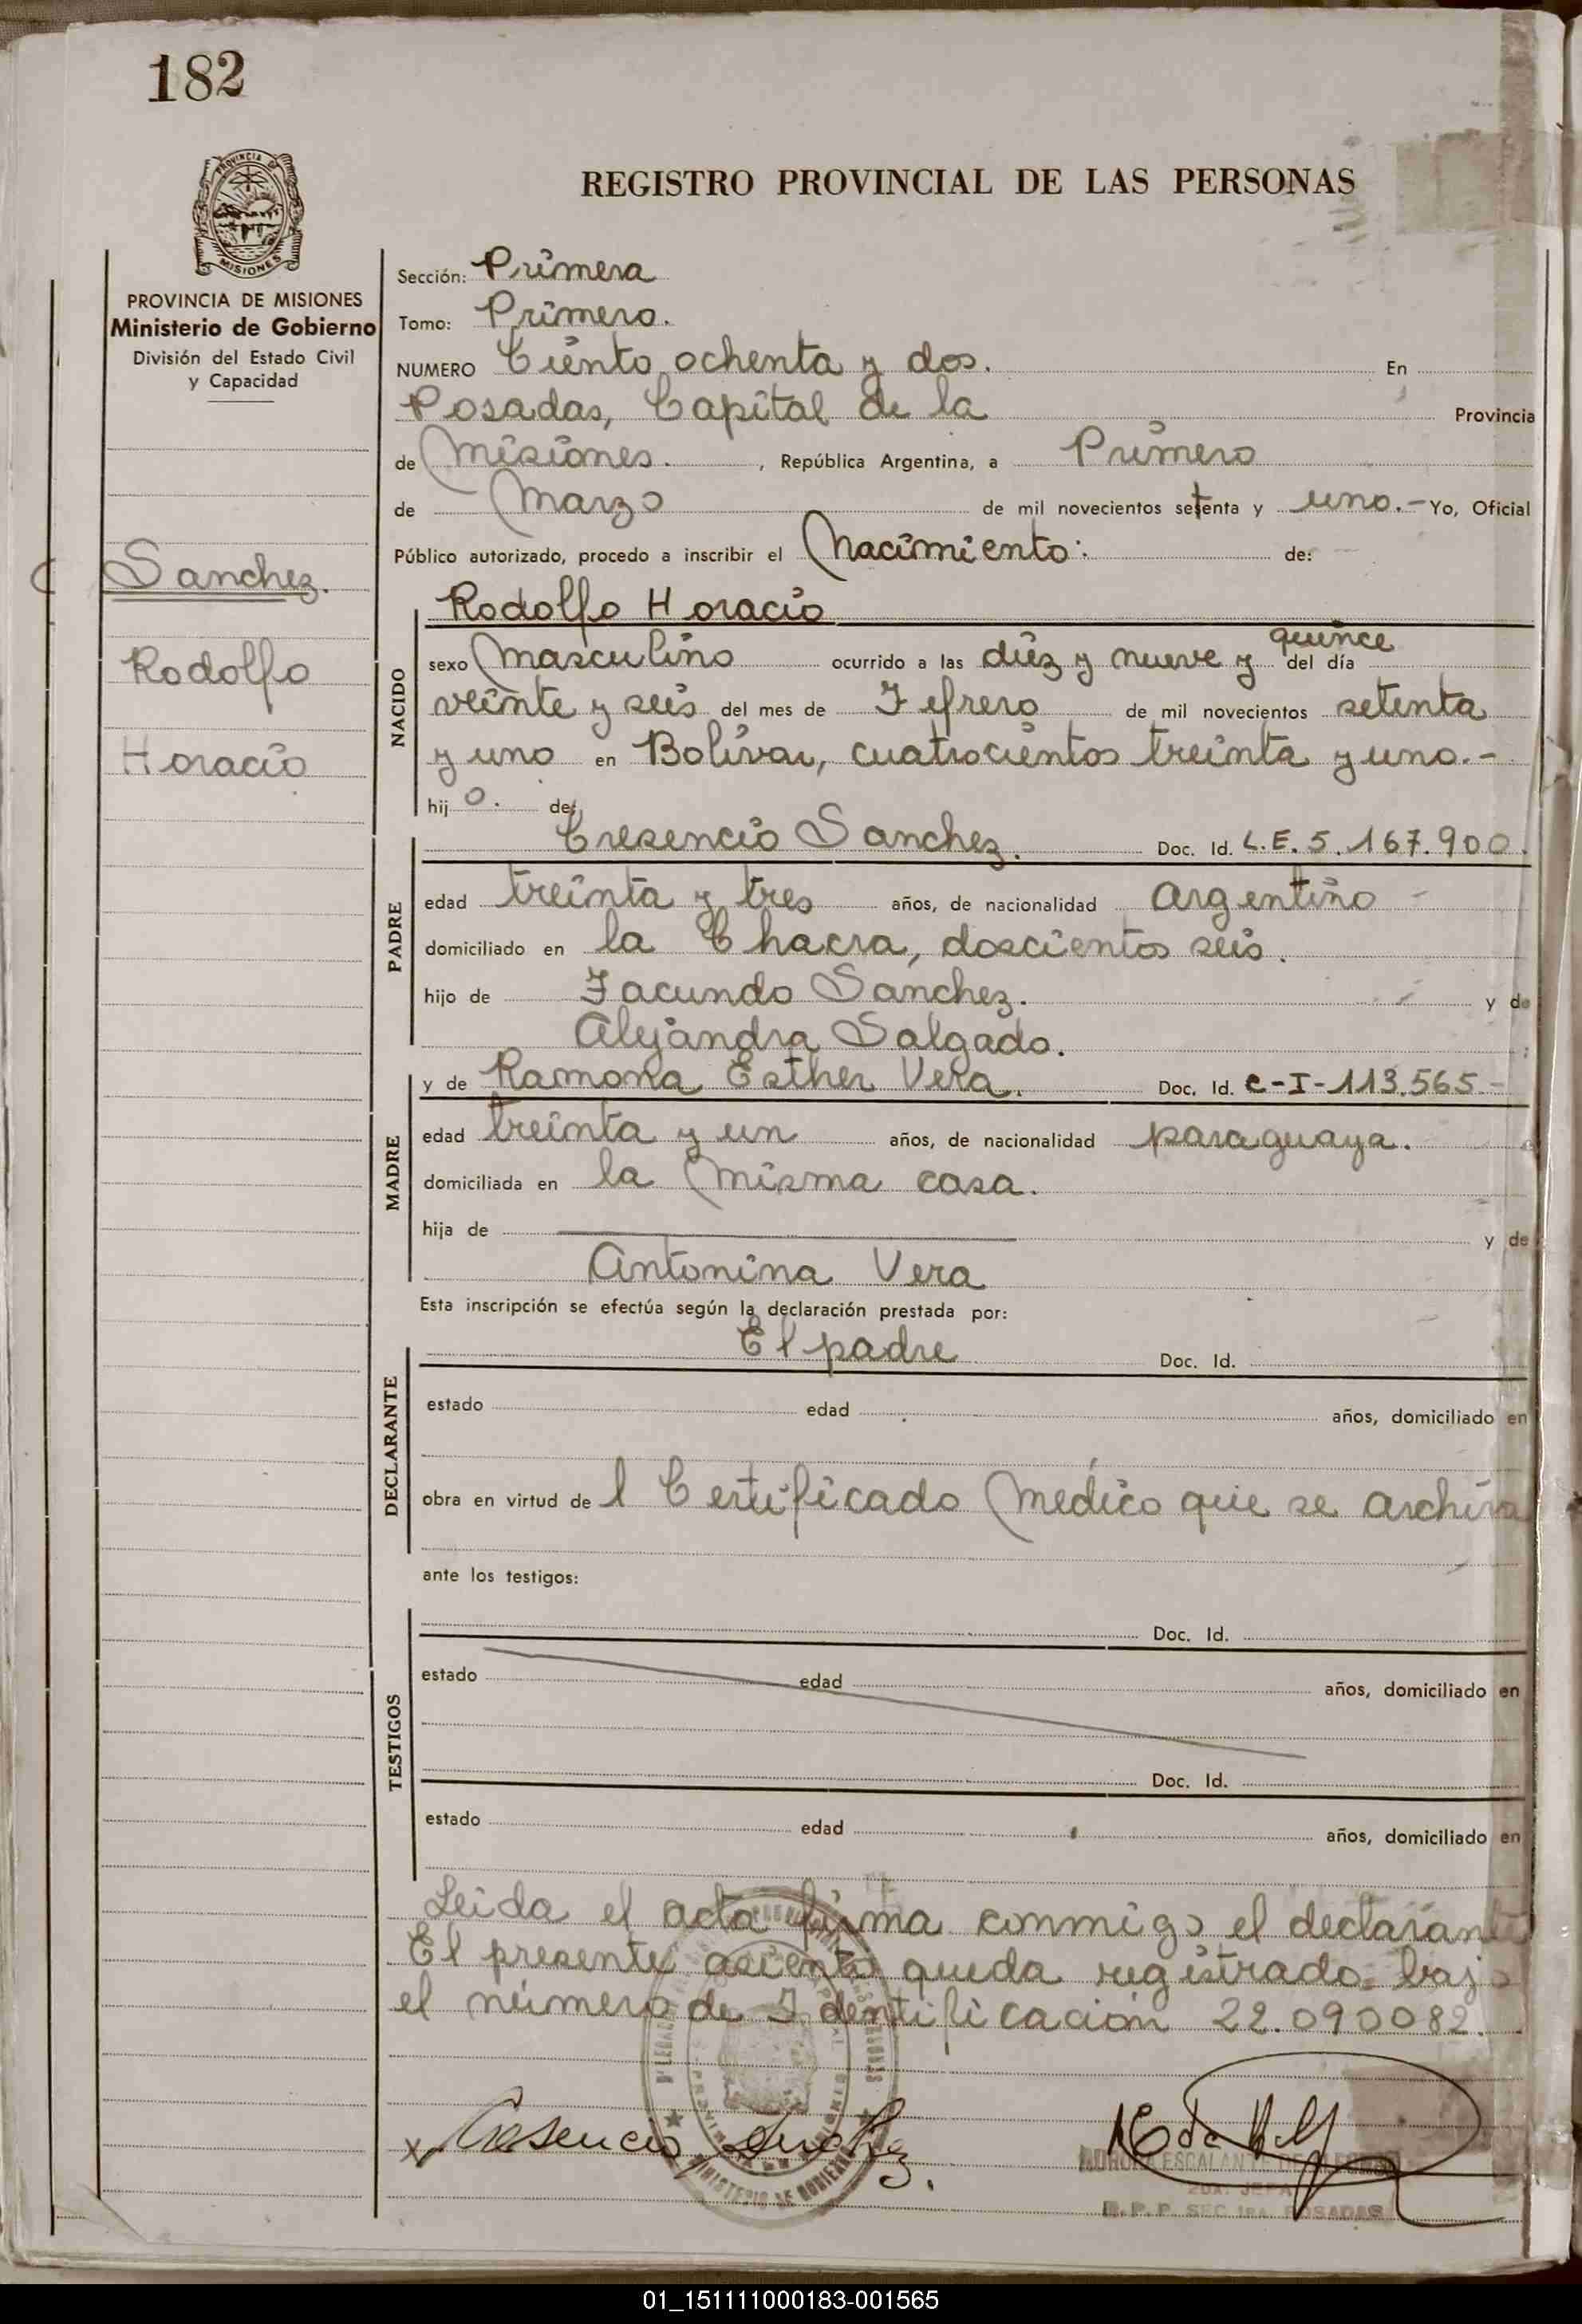 182
PROVINCIA DE
MISIONES
REGISTRO PROVINCIAL DE LAS PERSONAS
PROVINCIA DE MISIONES
Ministerio de Gobierno
División del Estado Civil
y Capacidad
Sanchez.
Rodolfo
Horacio
Sección: Primera
Tomo: Primero.
NUMERO Ciento ochenta y dos. En
Posadas, Capital de la Provincia
de Misiones. , República Argentina, a Primero
de Marzo de mil novecientos setenta y uno.- Yo, Oficial
Público autorizado, procedo a inscribir el Nacimiento: de:
NACIDO
Rodolfo Horacio
sexo Masculino ocurrido a las diez y nueve y quince del día
veinte y seis del mes de Fefrero de mil novecientos setenta
y uno en Bolívar, cuatrocientos treinta y uno.-
hij o. de:
PADRE
Cresencio Sanchez. Doc. Id. L.E. 5.167.900.
edad treinta y tres años, de nacionalidad Argentino -
domiciliado en la Chacra, doscientos seis.
hijo de Facundo Sanchez. y de
Alejandra Salgado. ;
MADRE
y de Ramona Esther Vera. Doc. Id. C-I-113.565-
edad treinta y un años, de nacionalidad paraguaya.
domiciliada en la Misma casa.
hija de y de
Antonina Vera
Esta inscripción se efectúa según la declaración prestada por:
DECLARANTE
El padre Doc. Id.
estado edad años, domiciliado en
obra en virtud de l Certificado Medico que se archiva
ante los testigos:
TESTIGOS
Doc. Id.
estado edad años, domiciliado en
Doc. Id.
estado edad años, domiciliado en
Leida el acta firma conmigo el declarante
El presente asiento queda registrado bajo
el número de Identificación 22.090082.
x Cresencio Sanchez.
MINISTERIO DE GOBIERNO
AURORA ESCALANTE DE
2DA. JEFA
R.P.P. SEC 1RA. POSADAS
01_151111000183-001565